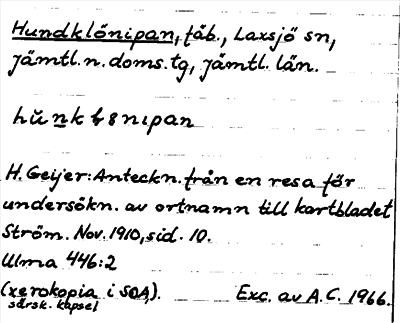 Hundklönipan, fäb., Laxsjö sn,
Jämtl. n. doms. tg, Jämtl. län.
H. Geijer: Anteckn. från en resa för
undersökn. av ortnamn till kartbladet
Ström. Nov. 1910, sid. 10.
Ulma 446:2
(xerokopia i SOA). Exc. av A.C. 1966.
särsk. kapsel